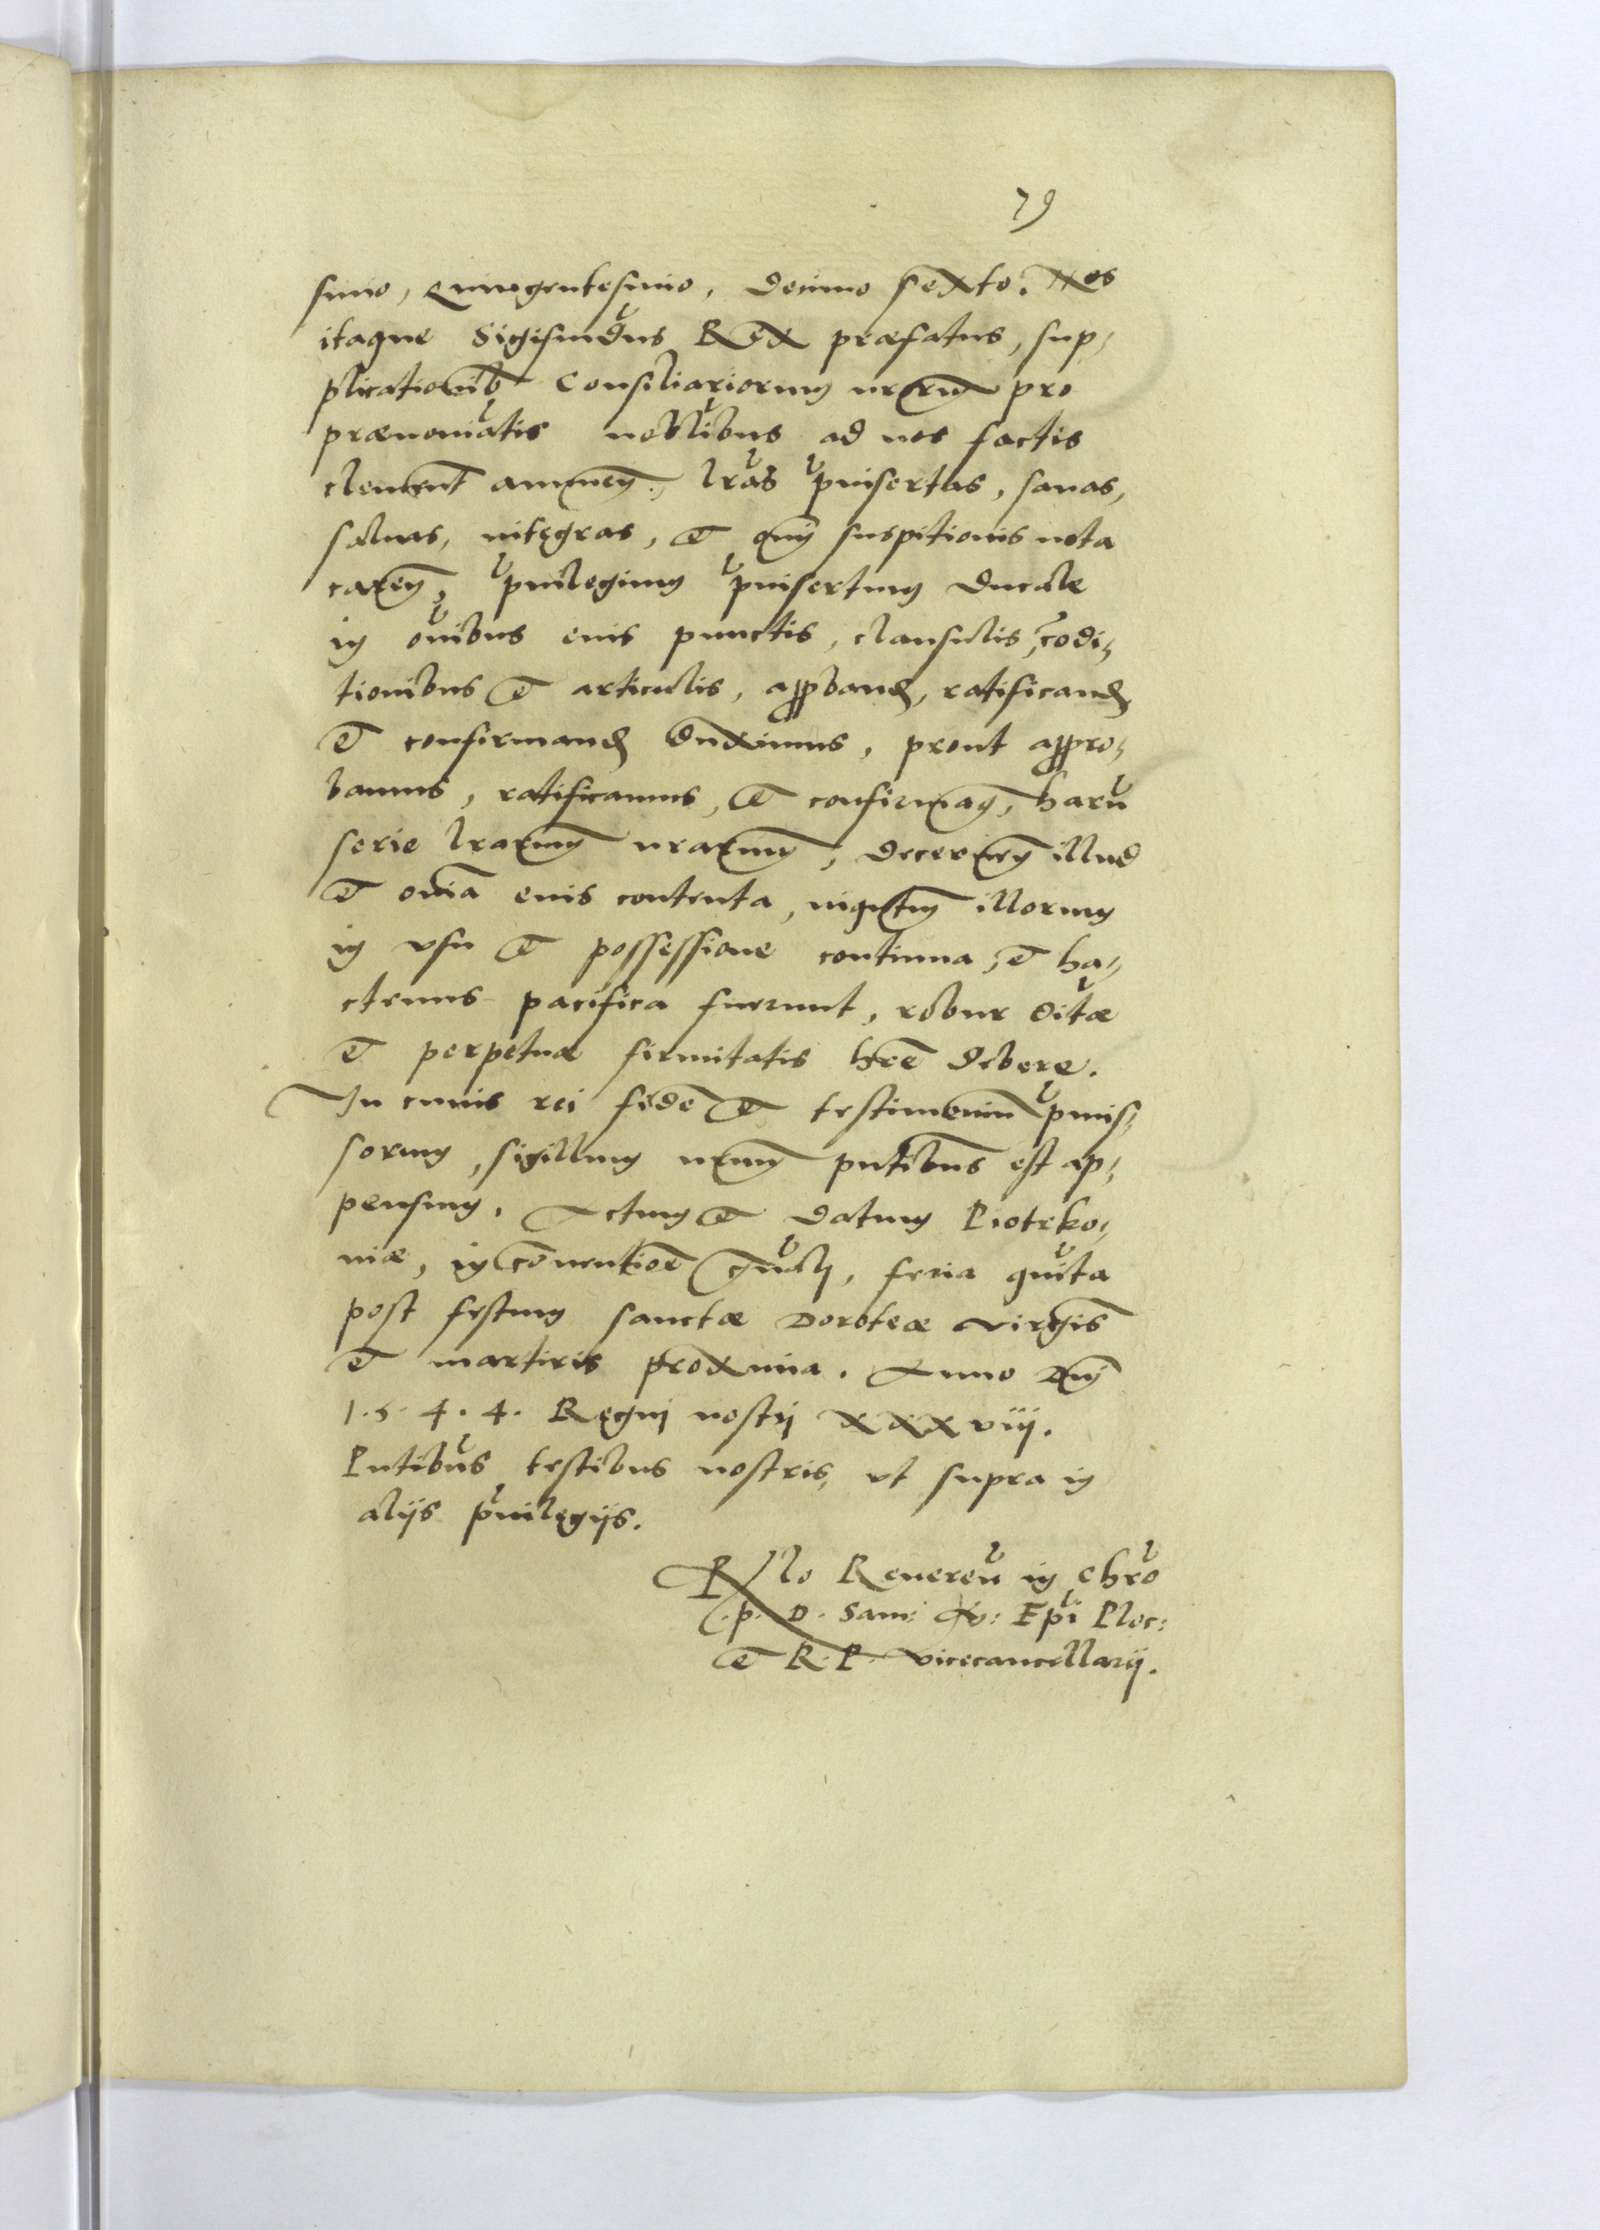 79
simo, Quingentesimo, decimo sexto. Nos
itaque Sigismūdus Rex præfatus, sup¬
plicationib Consiliariorum nrorum pro
prænoīatis nobilibus ad nos factis
clement annuen., lrās p̄insertas, sanas,
saluas, integras, et omī suspitionis nota
caren, p̄uilegium p̄insertum Ducale
in oībus eius punctis, clausulis, cōdi¬
tionibus et articulis, approband, ratificand
et confirmand duximus, prout appro¬
bamus, ratificamus, et confirmam, harū
serie lrarum nrarum, decernen illud
et omīa eius contenta, inquantum illorum
in vsu et possessione continua, et ha¬
ctenus pacifica fuerunt, robur ditæ
et perpetuæ firmitatis hrē debere.
In cuius rei fidē et testimoniū p̄mis¬
sorum, sigillum nrum pntibus est ap¬
pensum. Actum et datum Piotrko¬
uiæ, in cōuentiōe gn̄ali, feria quīta
post festum sanctæ Doroteæ virgīs
et martiris proxima. Anno Dnī
1.5.4.4. Regni nostri xxxviij.
Pntibus testibus nostris, vt supra in
alijs p̄uilegijs.
Rllo Reuerēn in Chrō
.p. D. Sam: Epi Ploc:
et R. P. vicecancellarij.